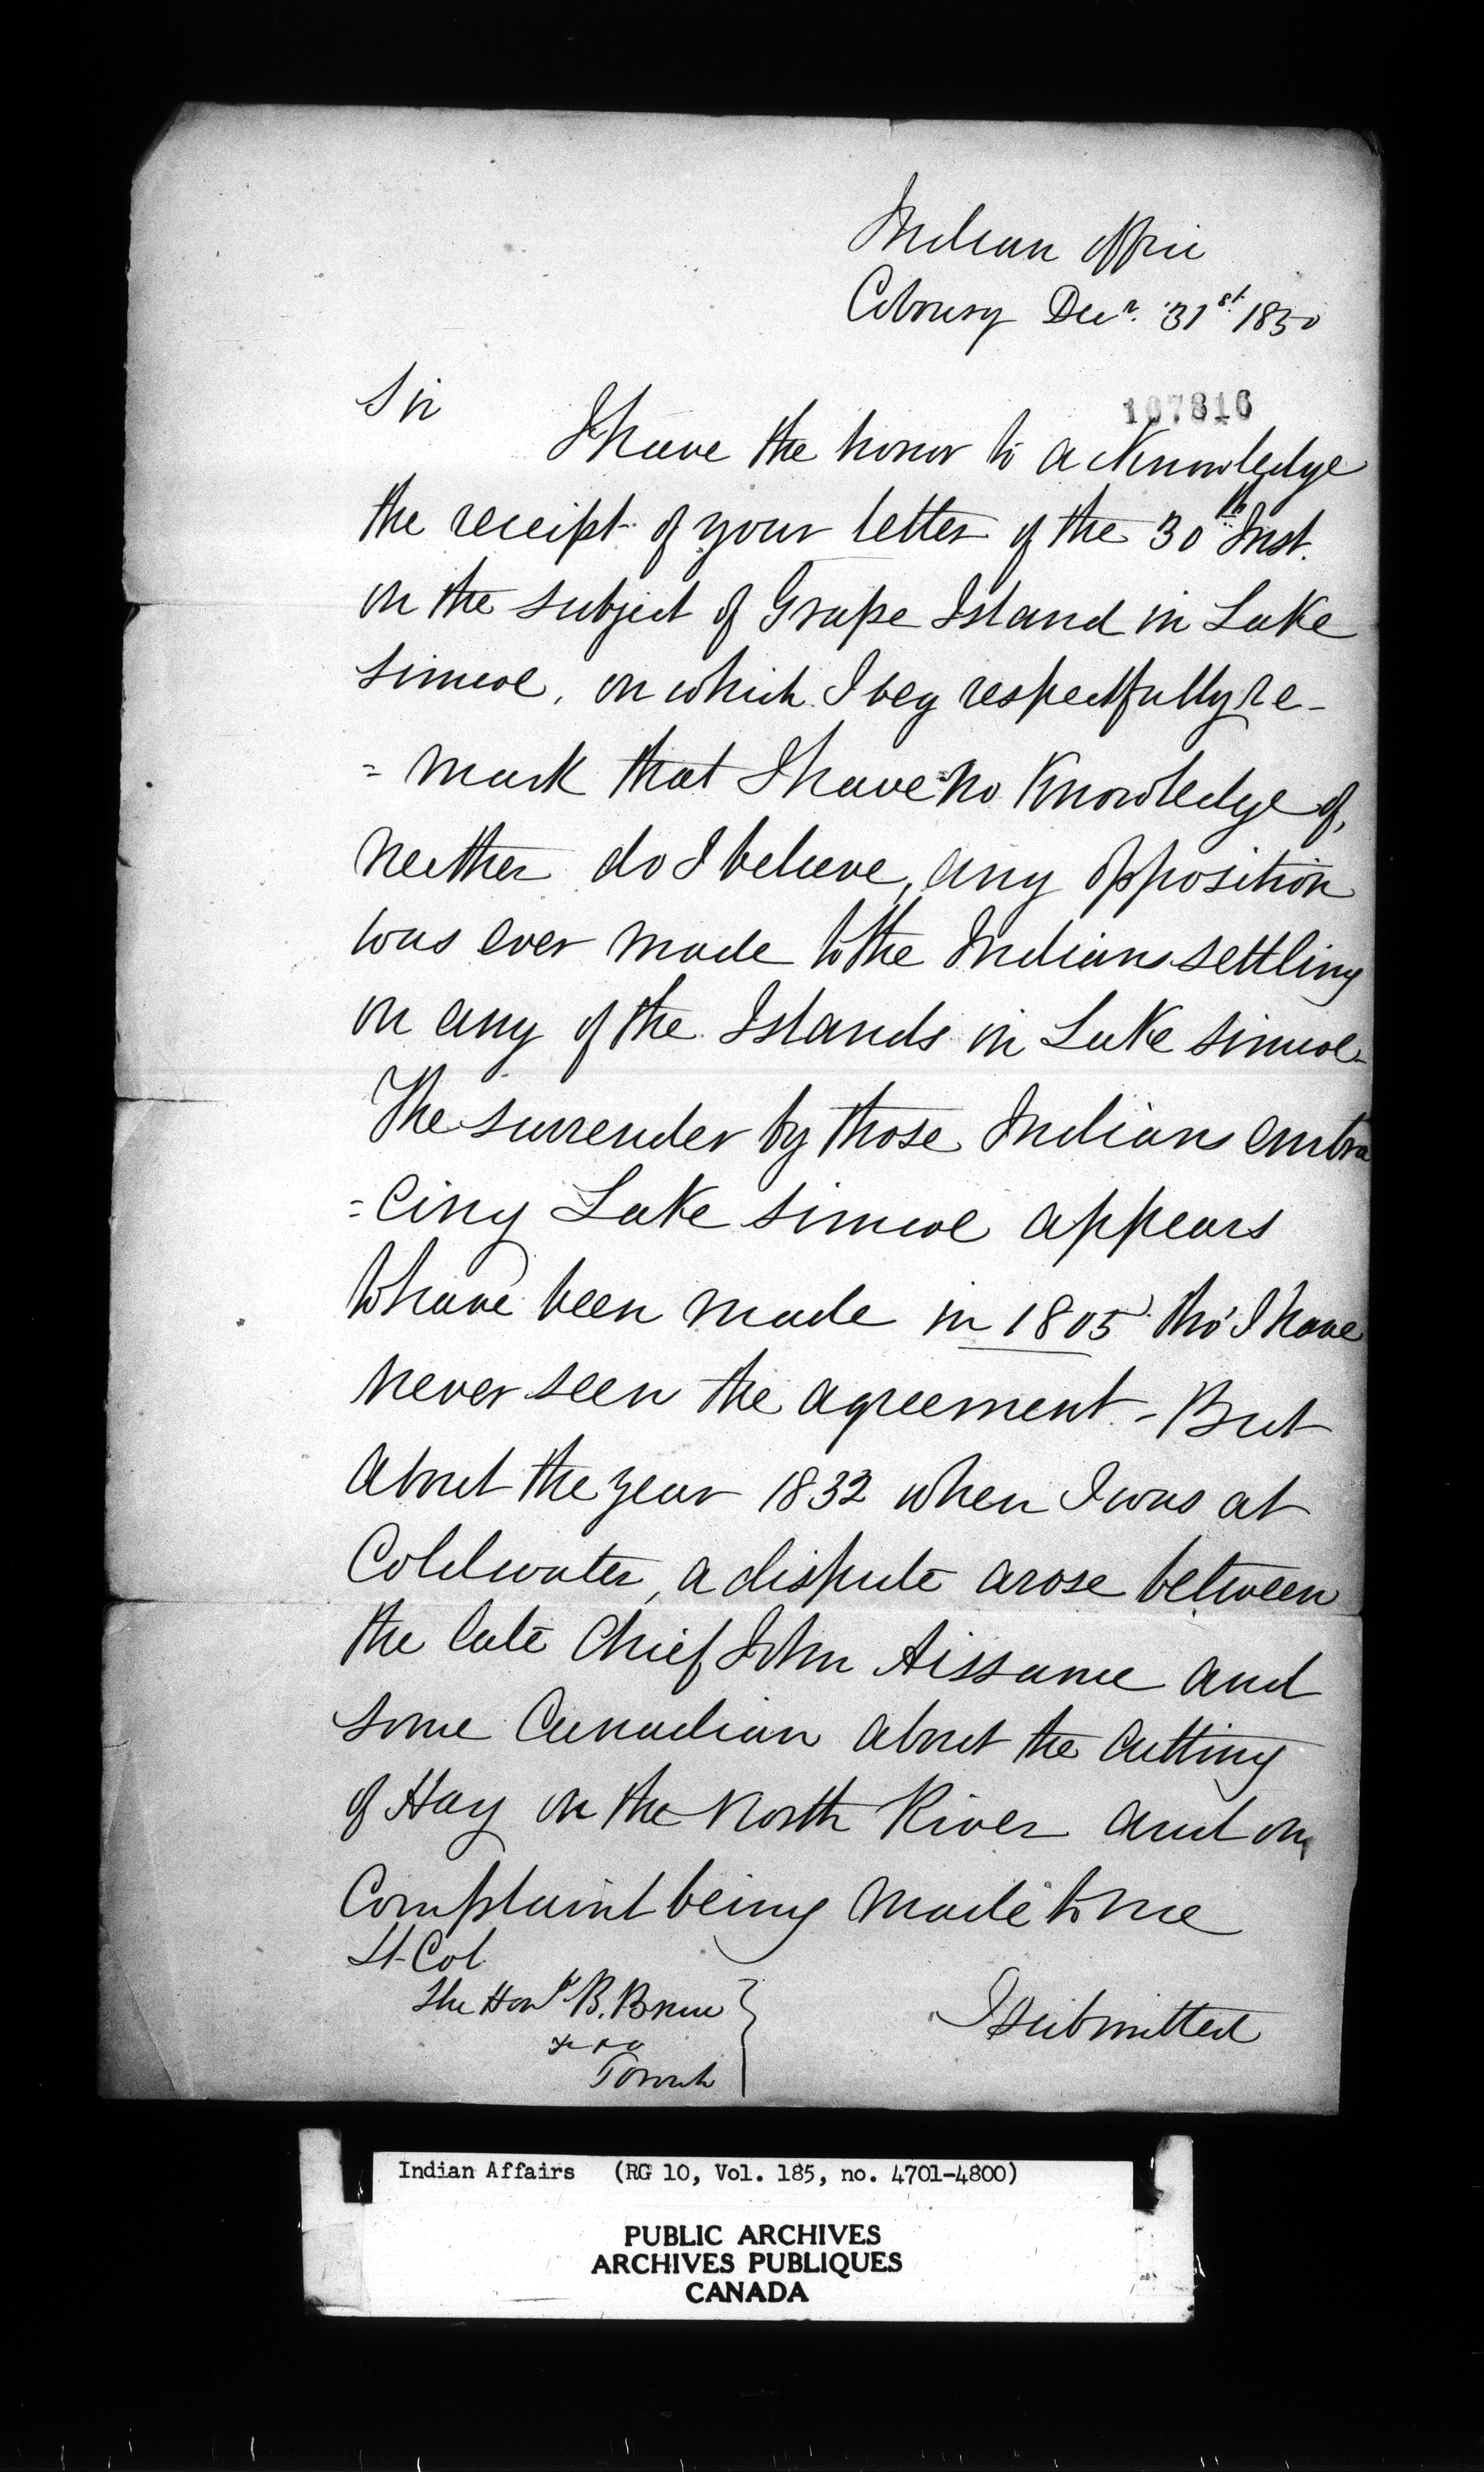 Indian Office
Cobourg Decr. 31st. 1850
107816
Sir
I have the honor to acknowledge
the receipt of your letter of the 30th Inst.
on the subject of Grape Island in Lake
Simcoe, on which I beg respectfully re-
= mark that I have no Knowledge of,
neither do I believe, any opposition
was ever made to the Indians settling
on any of the Islands in Lake Simcoe -
The surrender by those Indians embra
=cing Lake Simcoe appears
to have been made in 1805 tho' I have
never seen the agreement - But
about the year 1832 when I was at
Coldwater, a dispute arose between
the late Chief John Aissance and
some Canadian about the Cutting
of Hay on the North River and on
Complaint being made to me
Lt. Col.
The Honle B. Bruce
Toronto
I submitted
Indian Affairs (RG 10, Vol. 185, no. 4701-4800)
PUBLIC ARCHIVES
ARCHIVES PUBLIQUES
CANADA